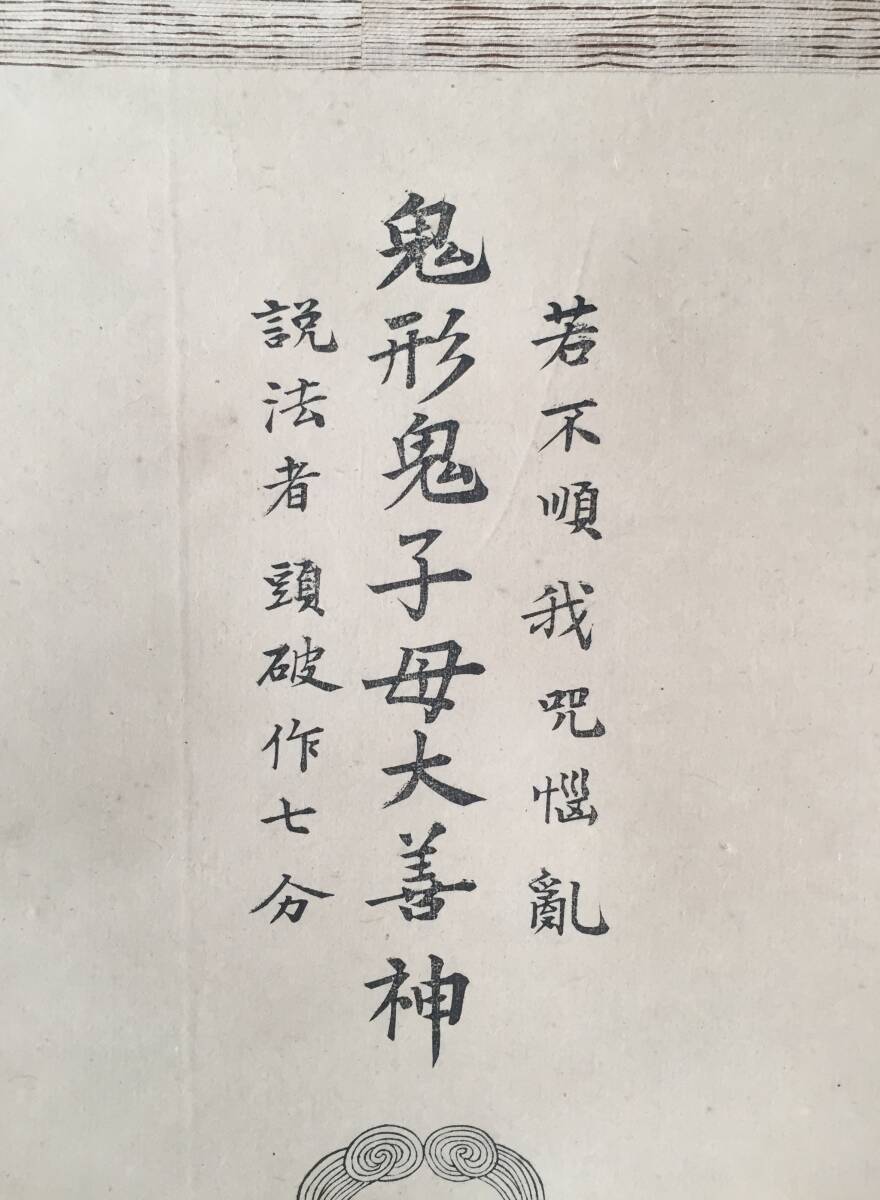 若不順我咒惱亂
鬼形鬼子母大善神
説法者頭破作七分